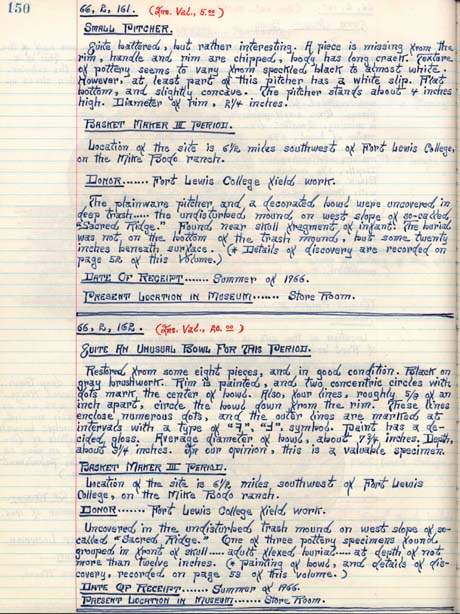 150
66, 2, 161. (Ins. Val., 5.00)
Small Pitcher.
Quite battered, but rather interesting. A piece is missing from the
rim, handle and rim are chipped, body has long crack. Texture
of pottery seems to vary from speckled black to almost white.
However, at least part of this pitcher has a white slip. Flat
bottom, and slightly concave. The pitcher stands about 4 inches
high. Diameter of rim, 2 1/4 inches.
Basket Maker III Period.
Location of the site is 6 1/2 miles southwest of Fort Lewis College,
on the Mike Bodo ranch.
Donor....... Fort Lewis College field work.
The plainware pitcher, and a decorated bowl were uncovered in
deep trash..... the undisturbed mound on west slope of so-called,
"Sacred Ridge." Found near skull fragment of infant. The burial
was not on the bottom of the trash mound, but some twenty
inches beneath surface. (* Details of discovery are recorded on
page 52 of this volume.)
Date Of Receipt...... Summer of 1966.
Present Location in Museum....... Store Room.
66, 2, 162. (Ins. Val., 20.00)
Quite An Unusual Bowl For This Period.
Restored from some eight pieces, and in good condition. Black on
gray brushwork. Rim is painted, and two concentric circles with
dots mark the center of bowl. Also, four lines, roughly 5/8 of an
inch apart, circle the bowl down from the rim. These lines
enclose numerous dots, and the outer lines are marked at
intervals with a type of symbol. Paint has a de-
cided gloss. Average diameter of bowl, about 7 3/4 inches. Depth,
about 3 1/4 inches. In our opinion, this is a valuable specimen.
Basket Maker III Period.
Location of the site is 6 1/2 miles, southwest of Fort Lewis
College, on the Mike Bodo ranch.
Donor....... Fort Lewis College field work.
Uncovered in the undisturbed trash mound on west slope of so-
called "Sacred Ridge." One of three pottery specimens found,
grouped in front of skull..... adult flexed burial..... at depth of not
more than twelve inches. (* Painting of bowl, and details of dis-
covery, recorded on page 53 of this volume.)
Date Of Receipt...... Summer of 1966.
Present Location in Museum....... Store Room.